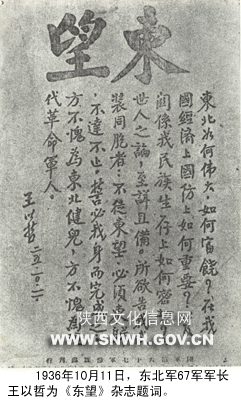 東望
東北如何偉大,如何富饒?在我
國經濟上國防上如何重要?
關係我民族生存上如何密
世人之論,至詳且備。所欲告
裝同胞者:不徒東望,必須
,不達不止。誓必我身而完成
方不愧為東北健兒,方不愧為
代革命軍人。
王以哲
陕西文化信息网
WWW.SNWH.GOV.CN
1936年10月11日,东北军67军军长
王以哲为《东望》杂志题词。